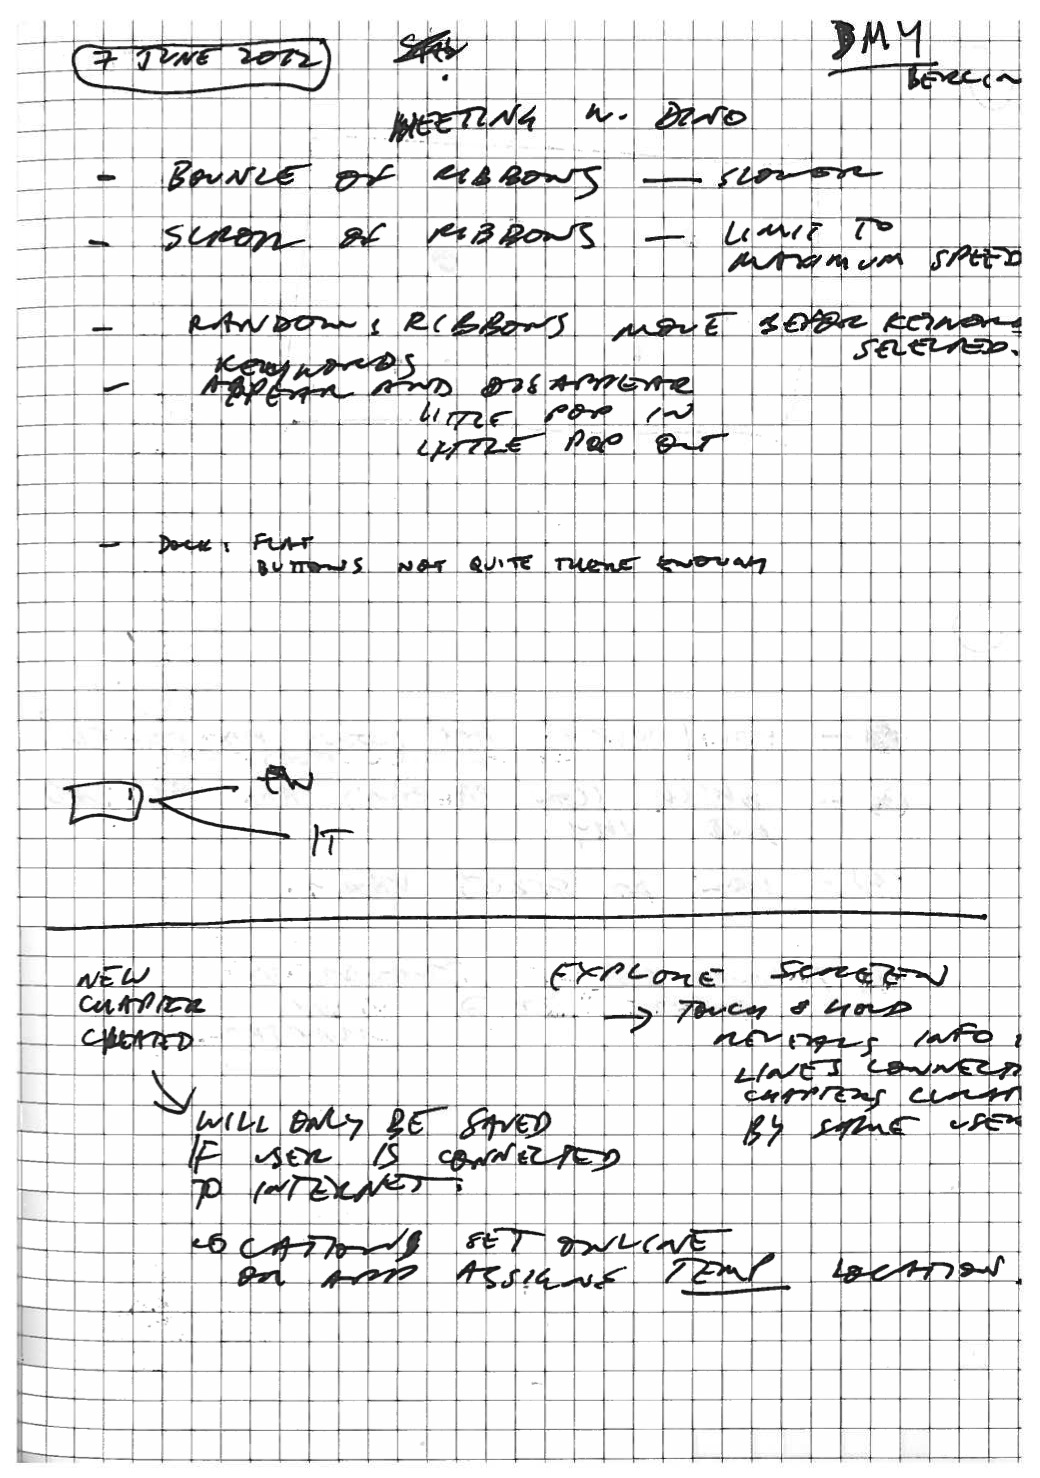 7 JUNE 2012
BMY
BERLIN
MEETING W. DINO
- BOUNCE OF RIBBONS — SLOWER
- SCROLL OF RIBBONS — LIMIT TO
MAXIMUM SPEED
- RANDOM: RIBBONS MOVE BEFOR KEYWORD
SELECTED.
KEYWORDS
- APPEAR AND DISAPPEAR
LITTLE POP IN
LITTLE POP OUT
- DOCK: FLAT
BUTTONS NOT QUITE THERE ENOUGH
EN
IT
NEW
CHAPTER
CREATED
WILL ONLY BE SAVED
IF USER IS CONNECTED
TO INTERNET.
LOCATIONS SET ONLINE
OR APP ASSIGNS TEMP LOCATION.
EXPLORE SCREEN
→ TOUCH & HOLD
REVEALS INFO:
LINES CONNECT
CHAPTERS
BY SAME USER